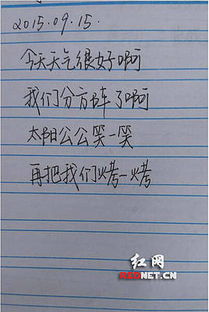 2015.09.15.
今天天气很好啊
我们分方阵了啊
太阳公公笑一笑
再把我们烤一烤
红网
REDNET.CN